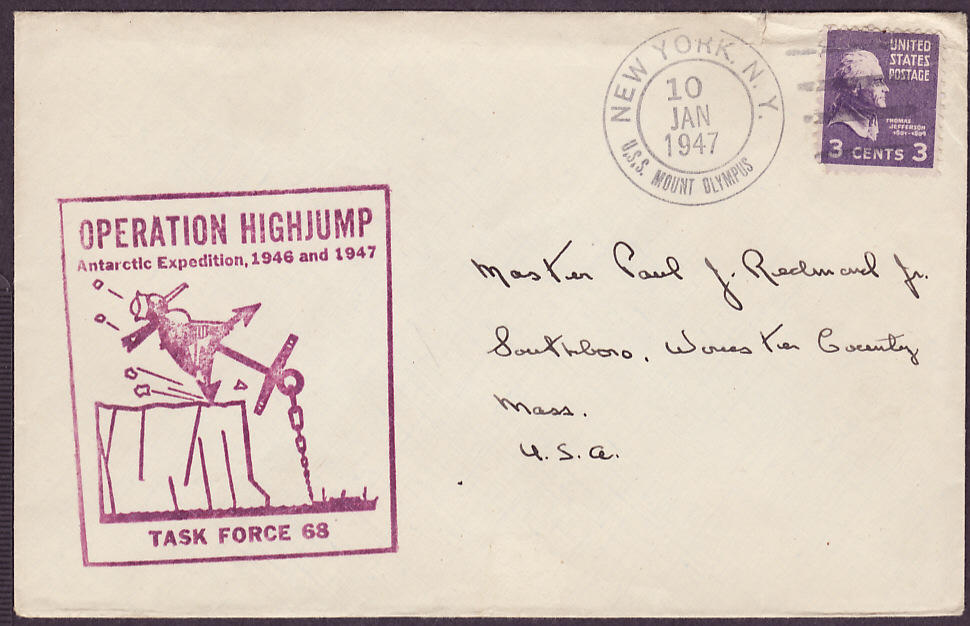 NEW YORK, N.Y.
10
JAN
1947
U.S.S. MOUNT OLYMPUS
UNITED
STATES
POSTAGE
THOMAS
JEFFERSON
1801-1809
3 CENTS 3
OPERATION HIGHJUMP
Antarctic Expedition, 1946 and 1947
TASK FORCE 68
Master Paul J. Redmond Jr.
Southboro, Worcester County
Mass.
U.S.A.